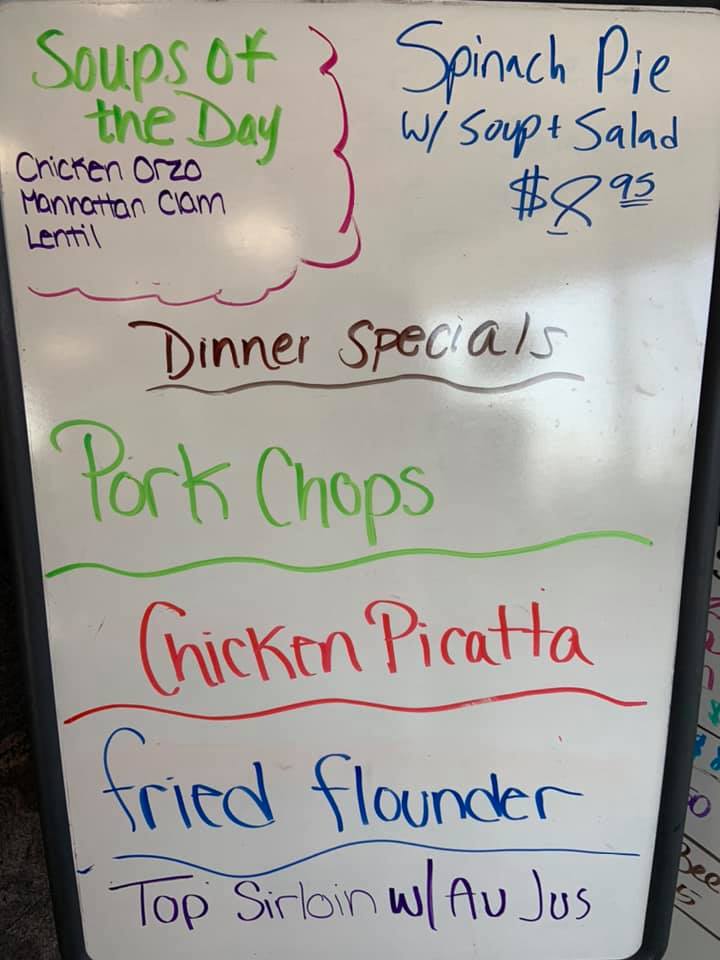 Soups of
the Day
Chicken Orzo
Manhattan Clam
Lentil
Spinach Pie
w/ Soup + Salad
$8.95
Dinner Specials
Pork Chops
Chicken Picatta
fried flounder
Top Sirloin w/ Au Jus